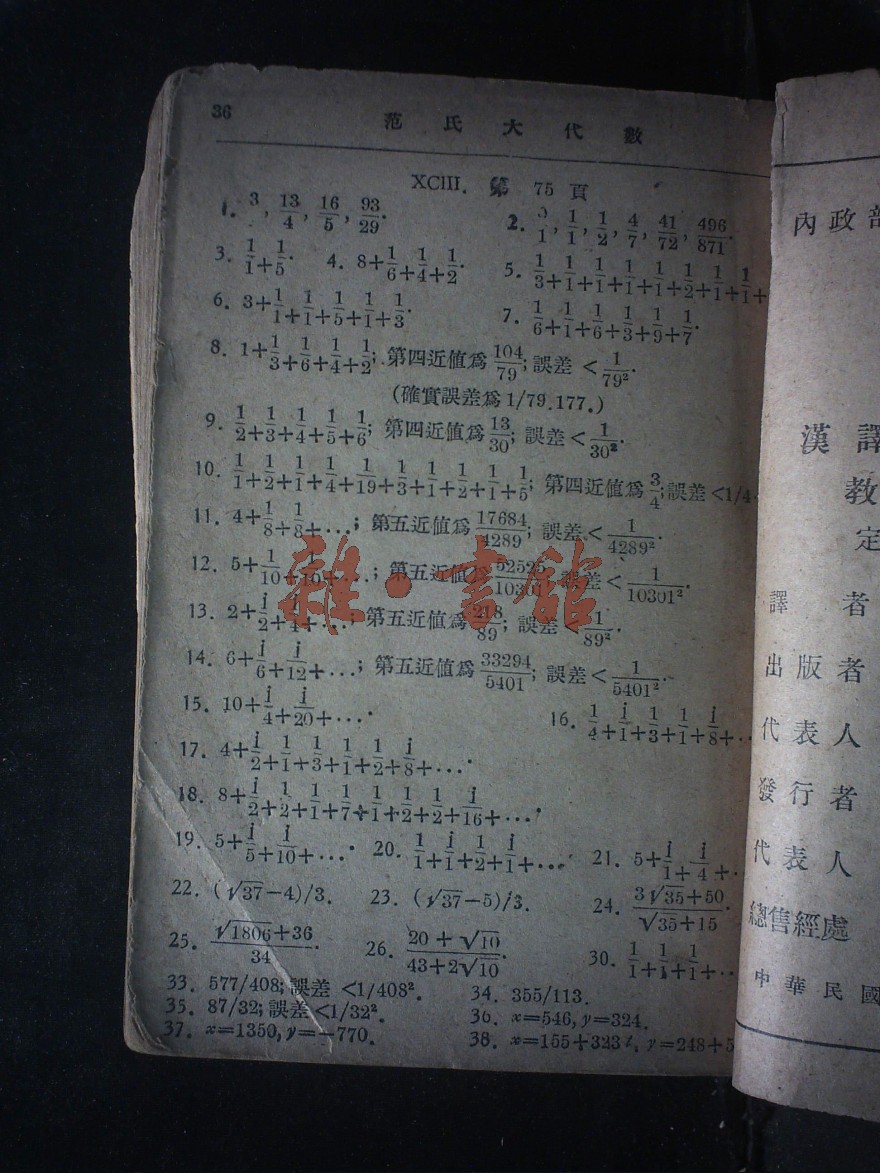 36
范氏大代數
XCIII. 第 75 頁
1. 3, 13/4, 16/5, 93/29. 2. 0/1, 1/1, 1/2, 4/7, 41/72, 496/871.
3. 1/1+1/5. 4. 8+1/6+1/4+1/2. 5. 1/3+1/1+1/1+1/1+1/1+1/2+1/1+1/1+
6. 3+1/1+1/1+1/5+1/1+1/3. 7. 1/6+1/1+1/6+1/3+1/9+1/7.
8. 1+1/3+1/6+1/4+1/2; 第四近值爲 104/79; 誤差 < 1/79².
(確實誤差爲 1/79.177.)
9. 1/2+1/3+1/4+1/5+1/6; 第四近值爲 13/30; 誤差 < 1/30².
10. 1/1+1/2+1/1+1/4+1/19+1/3+1/1+1/2+1/1+1/5; 第四近值爲 3/4; 誤差 <1/4
11. 4+1/8+1/8+...; 第五近值爲 17684/4289; 誤差 < 1/4289².
12. 5+1/10+1/10+...; 第五近值爲 52525/10301 誤差 < 1/10301².
13. 2+1/2+1/4+...; 第五近值爲 218/89; 誤差 < 1/89².
14. 6+1/6+1/12+...; 第五近值爲 33294/5401; 誤差 < 1/5401².
15. 10+1/4+1/20+.... 16. 1/4+1/1+1/3+1/1+1/8+..
17. 4+1/2+1/1+1/3+1/1+1/2+1/8+....
18. 8+1/2+1/2+1/1+1/7+1/1+1/2+1/2+1/16+....
19. 5+1/5+1/10+.... 20. 1/1+1/1+1/2+1/1+... 21. 5+1/1+1/4+.
22. (√37−4)/3. 23. (√37−5)/3. 24. (3√35+50)/(√35+15).
25. (√1806+36)/34. 26. (20+√10)/(43+2√10). 30. 1/1+1/1+1/1+..
33. 577/408; 誤差 <1/408². 34. 355/113.
35. 87/32; 誤差<1/32². 36. x=546, y=324.
37. x=1350, y=−770. 38. x=155+323t, y=248+5
雜·書館
內政部
漢譯
教
定
譯者
出版者
代表人
發行者
代表人
總售經處
中華民國